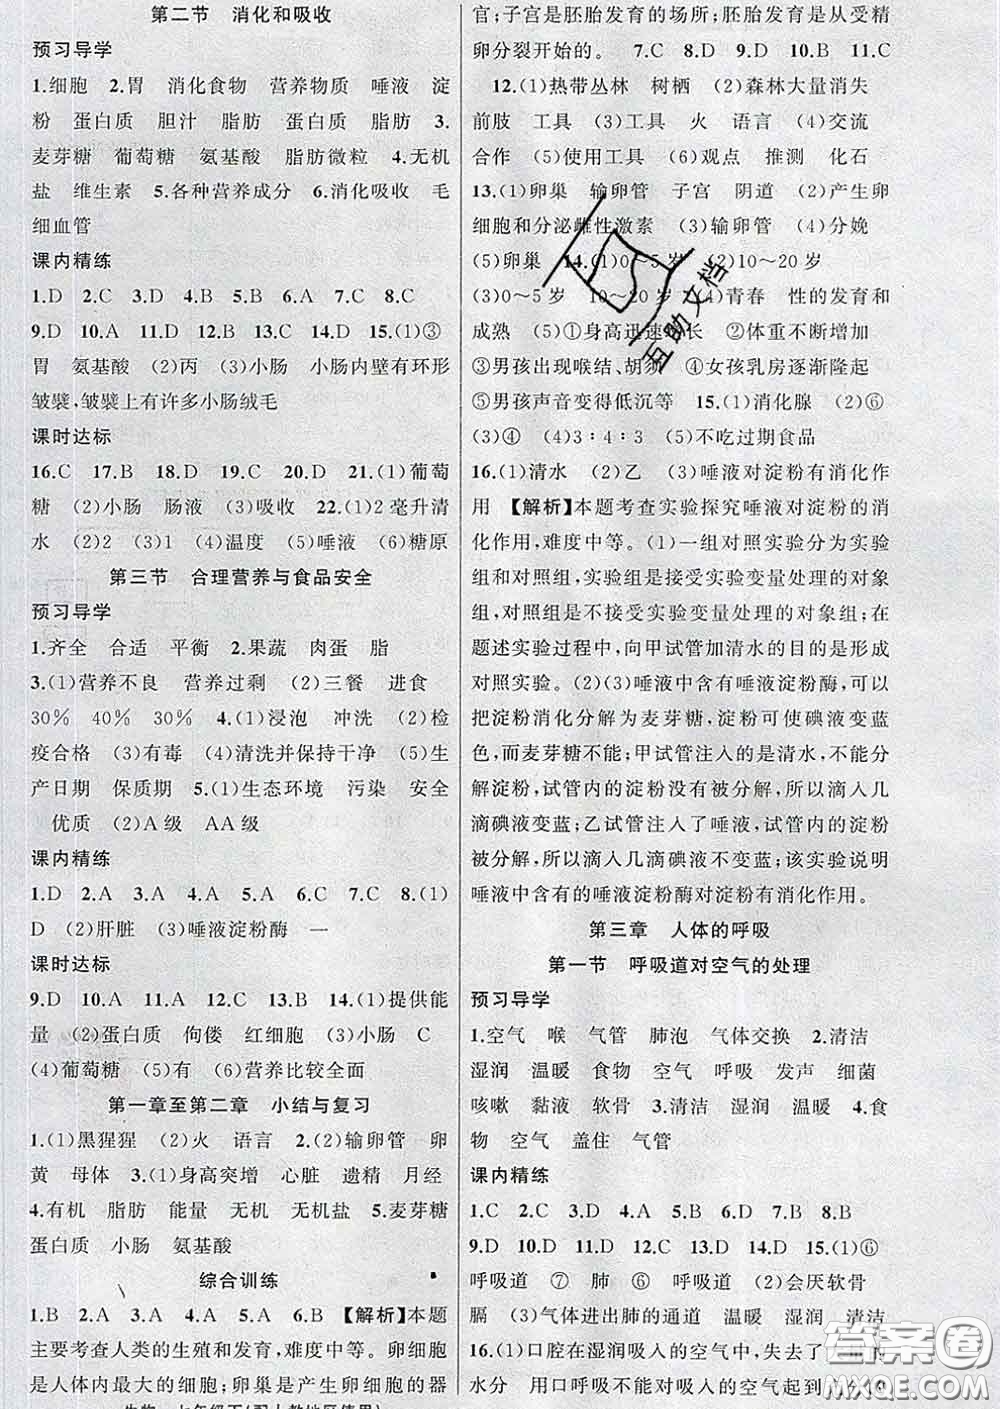 第二节　消化和吸收
预习导学
1.细胞　2.胃　消化食物　营养物质　唾液　淀
粉　蛋白质　胆汁　脂肪　蛋白质　脂肪　3.
麦芽糖　葡萄糖　氨基酸　脂肪微粒　4.无机
盐　维生素　5.各种营养成分　6.消化吸收　毛
细血管
课内精练
1.D　2.C　3.D　4.C　5.A　6.A　7.C　8.C
9.D　10.A　11.D　12.B　13.D　14.D　15.(1)③
胃　氨基酸　(2)丙　(3)小肠　小肠内壁有环形
皱襞,皱襞上有许多小肠绒毛
课时达标
16.C　17.B　18.D　19.C　20.D　21.(1)葡萄
糖　(2)小肠　肠液　(3)吸收　22.(1)2毫升清
水　(2)2　(3)1　(4)温度　(5)唾液　(6)糖原
第三节　合理营养与食品安全
预习导学
1.齐全　合适　平衡　2.果蔬　肉蛋　脂
3.(1)营养不良　营养过剩　(2)三餐　进食
30%　40%　30%　4.(1)浸泡　冲洗　(2)检
疫合格　(3)有毒　(4)清洗并保持干净　(5)生
产日期　保质期　5.(1)生态环境　污染　安全
优质　(2)A级　AA级
课内精练
1.D　2.A　3.A　4.A　5.C　6.C　7.C　8.(1)
D　(2)肝脏　(3)唾液淀粉酶　一
课时达标
9.D　10.A　11.A　12.C　13.B　14.(1)提供能
量　(2)蛋白质　佝偻　红细胞　(3)小肠　C
(4)葡萄糖　(5)有　(6)营养比较全面
第一章至第二章　小结与复习
1.(1)黑猩猩　(2)火　语言　2.(2)输卵管　卵
黄　母体　3.(1)身高突增　心脏　遗精　月经
4.有机　脂肪　能量　无机　无机盐　5.麦芽糖
蛋白质　小肠　氨基酸
综合训练
1.B　2.A　3.A　4.A　5.A　6.B　【解析】本题
主要考查人类的生殖和发育,难度中等。卵细胞
是人体内最大的细胞;卵巢是产生卵细胞的器
官;子宫是胚胎发育的场所;胚胎发育是从受精
卵分裂开始的。　7.C　8.D　9.D　10.B　11.C
12.(1)热带丛林　树栖　(2)森林大量消失
前肢　工具　(3)工具　火　语言　(4)交流
合作　(5)使用工具　(6)观点　推测　化石
13.(1)卵巢　输卵管　子宫　阴道　(2)产生卵
细胞和分泌雌性激素　(3)输卵管　(4)分娩
(5)卵巢　14.(1)0～5岁　(2)10～20岁
(3)0～5岁　10～20岁　(4)青春　性的发育和
成熟　(5)①身高迅速增长　②体重不断增加
③男孩出现喉结、胡须　④女孩乳房逐渐隆起
⑤男孩声音变得低沉等　15.(1)消化腺　(2)⑥
(3)④　(4)3∶4∶3　(5)不吃过期食品
16.(1)清水　(2)乙　(3)唾液对淀粉有消化作
用　【解析】本题考查实验探究唾液对淀粉的消
化作用,难度中等。(1)一组对照实验分为实验
组和对照组,实验组是接受实验变量处理的对象
组,对照组是不接受实验变量处理的对象组;在
题述实验过程中,向甲试管加清水的目的是形成
对照实验。(2)(3)唾液中含有唾液淀粉酶,可以
把淀粉消化分解为麦芽糖,淀粉可使碘液变蓝
色,而麦芽糖不能;甲试管注入的是清水,不能分
解淀粉,试管内的淀粉没有被分解,所以滴入几
滴碘液变蓝;乙试管注入了唾液,试管内的淀粉
被分解,所以滴入几滴碘液不变蓝;该实验说明
唾液中含有的唾液淀粉酶对淀粉有消化作用。
第三章　人体的呼吸
第一节　呼吸道对空气的处理
预习导学
1.空气　喉　气管　肺泡　气体交换　2.清洁
湿润　温暖　食物　空气　呼吸　发声　细菌
咳嗽　黏液　软骨　3.清洁　湿润　温暖　4.食
物　空气　盖住　气管
课内精练
1.C　2.C　3.D　4.A　5.D　6.D　7.B　8.B
9.D　10.D　11.D　12.D　13.B　14.D　15.(1)⑥
呼吸道　⑦　肺　⑥　呼吸道　(2)会厌软骨
膈　(3)气体进出肺的通道　温暖　湿润　清洁
16.(1)口腔在湿润吸入的空气中,失去了
水分　用口呼吸不能对吸入的空气起到
互助文档
答案圈